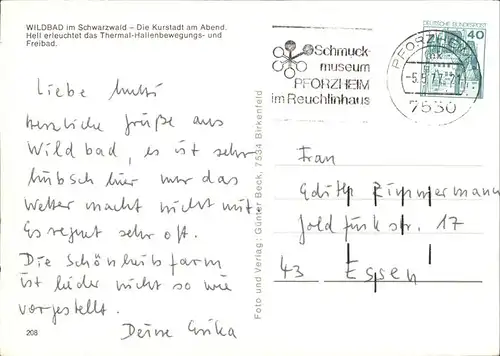 WILDBAD im Schwarzwald – Die Kurstadt am Abend.
Hell erleuchtet das Thermal-Hallenbewegungs- und
Freibad.
Liebe Mutti
herzliche Grüße aus
Wildbad, es ist sehr
hübsch hier nur das
Wetter macht nicht mit.
Es regnet sehr oft.
Die Schönheitsfarm
ist leider nicht so wie
vorgestellt.
Deine Erika
208
Foto und Verlag: Günter Beck, 7534 Birkenfeld
Schmuck-
museum
PFORZHEIM
im Reuchlinhaus
PFORZHEIM
7530
DEUTSCHE BUNDESPOST
40
Frau
Edith Zimmermann
str. 17
43 Essen